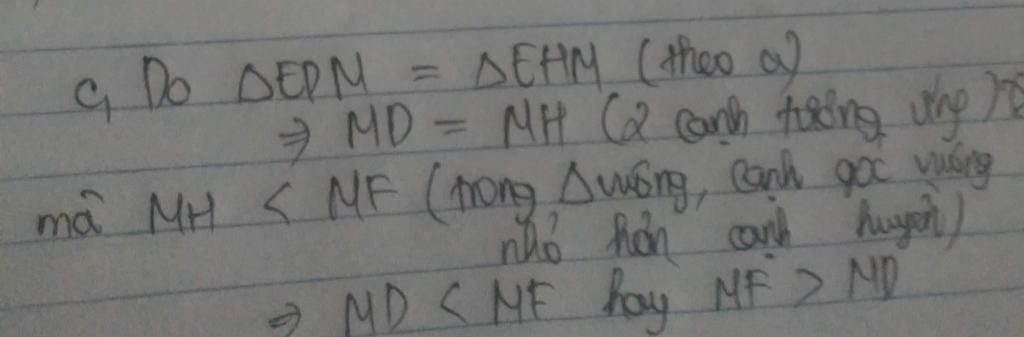 c, Do ΔEDM = ΔEHM (theo a)
⇒ MD = MH (2 cạnh tương ứng)
mà MH < MF (trong Δ vuông, cạnh góc vuông
nhỏ hơn cạnh huyền)
⇒ MD < MF hay MF > MD